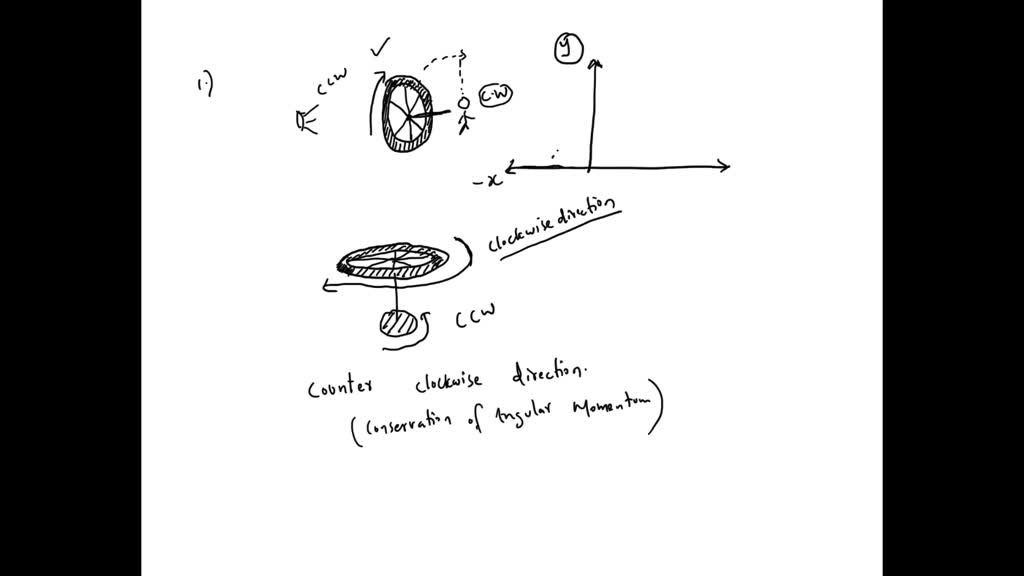 1.)
CCW
C.W
y
-x
clockwise direction
CCW
Counter clockwise direction.
(conservation of Angular Momentum)